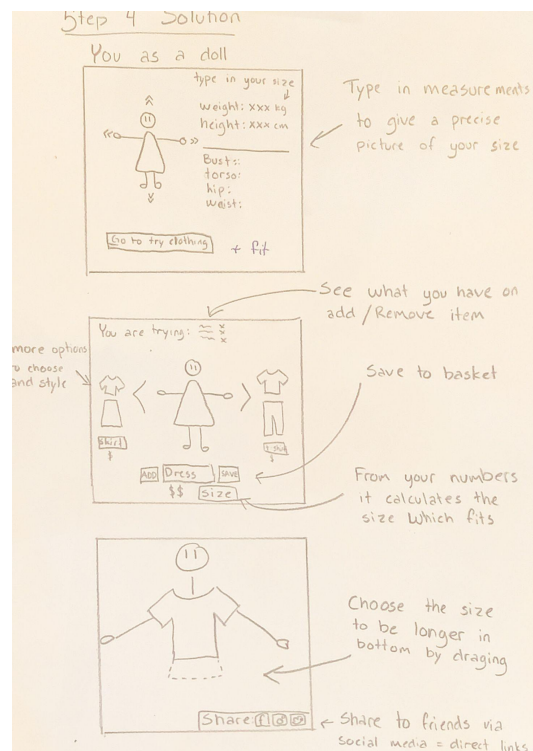 Step 4 Solution
You as a doll
type in your size
weight: xxx kg
height: xxx cm
Bust:
torso:
hip:
waist:
Go to try clothing
+ fit
Type in measurements
to give a precise
picture of your size
See what you have on
add / Remove item
You are trying:
more options
to choose
and style
shirt
$
ADD Dress SAVE
$$ Size
$
Save to basket
From your numbers
it calculates the
size which fits
Choose the size
to be longer in
bottom by draging
Share f
Share to friends via
social media = direct links